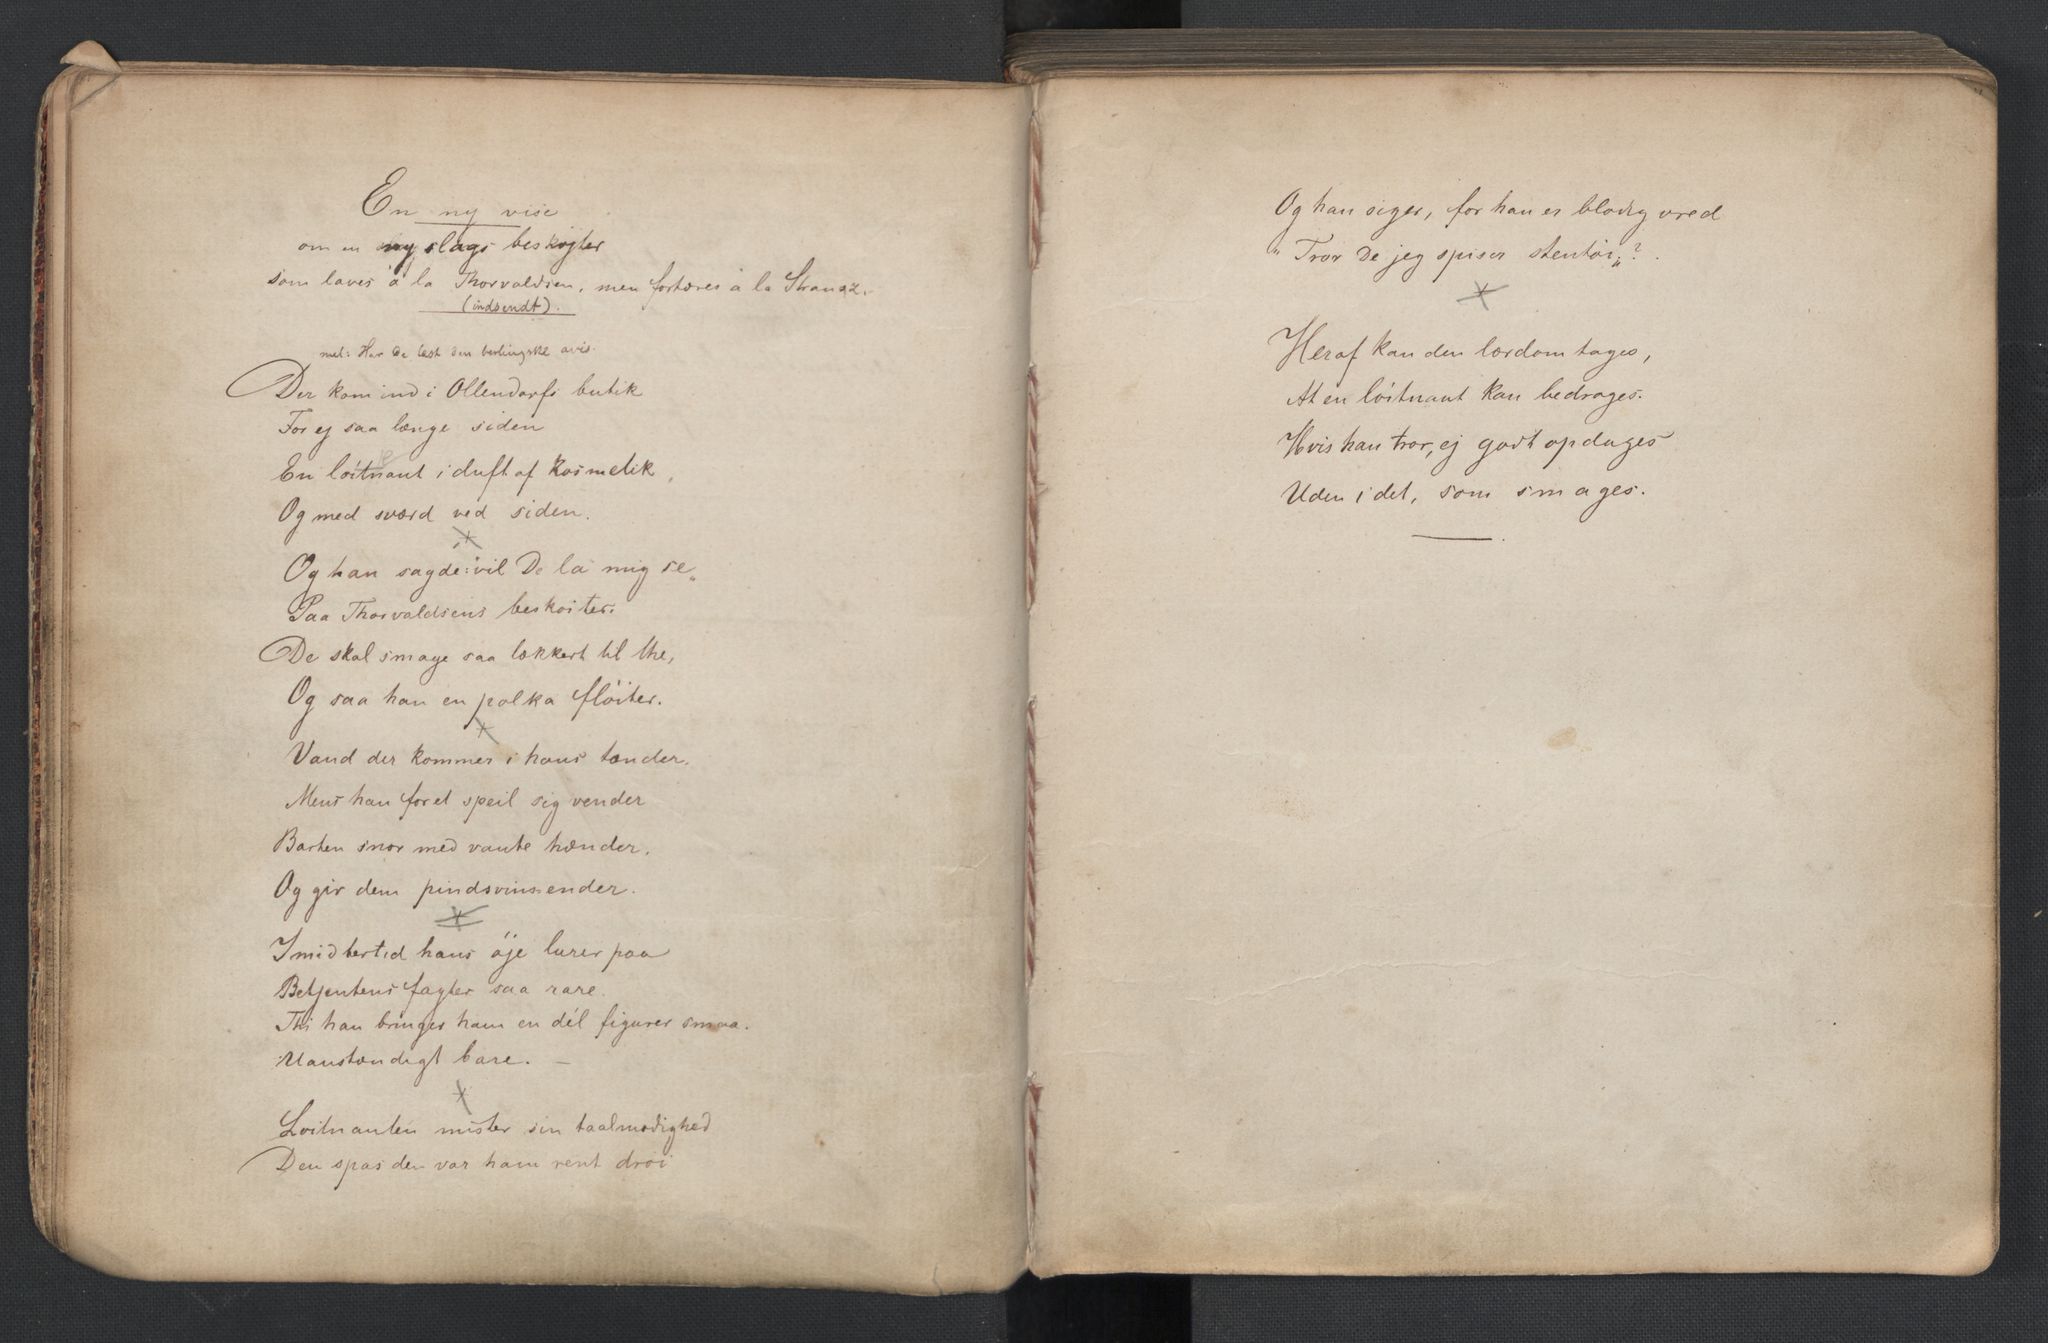 En ny vise
om en ny slags beskøjter
som laves à la Thorvaldsen, men fortæres à la Strausz.
(indsendt).
mel: Har De læst den berlingske avis.
Der kom ind i Ollendorfs butik
For ej saa længe siden
En löitnant i duft af kosmetik,
Og med sværd ved siden.
*
Og han sagde: "vil De la mig se"
Paa Thorvaldsens beskøiter.
De skal smage saa lækkert til the,
Og saa han en polka flöiter.
*
Vand der kommer i hans tænder.
Mens han foret speil sig vender
Barten snor med vante hænder.
Og gir dem pindsvinsender.
*
Imidtertid hans öje lurer paa
Betjentens fagter saa rare.
Thi han bringer ham en dél figurer smaa.
Uanstændigt bare. —
*
Löitnanten mister sin taalmodighed
Den spas den var ham rent dröi
Og han siger, for han er blodig vred
"Tror De jeg spiser stentöi"?
*
Heraf kan den lærdom tages,
At en löitnant kan bedrages.
Hvis han tror, ej godt opdages
Uden i det, som smages.